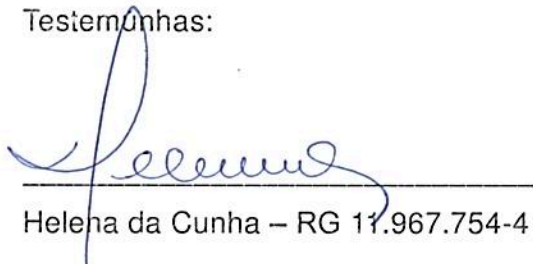 Testemunhas:
Helena da Cunha – RG 11.967.754-4